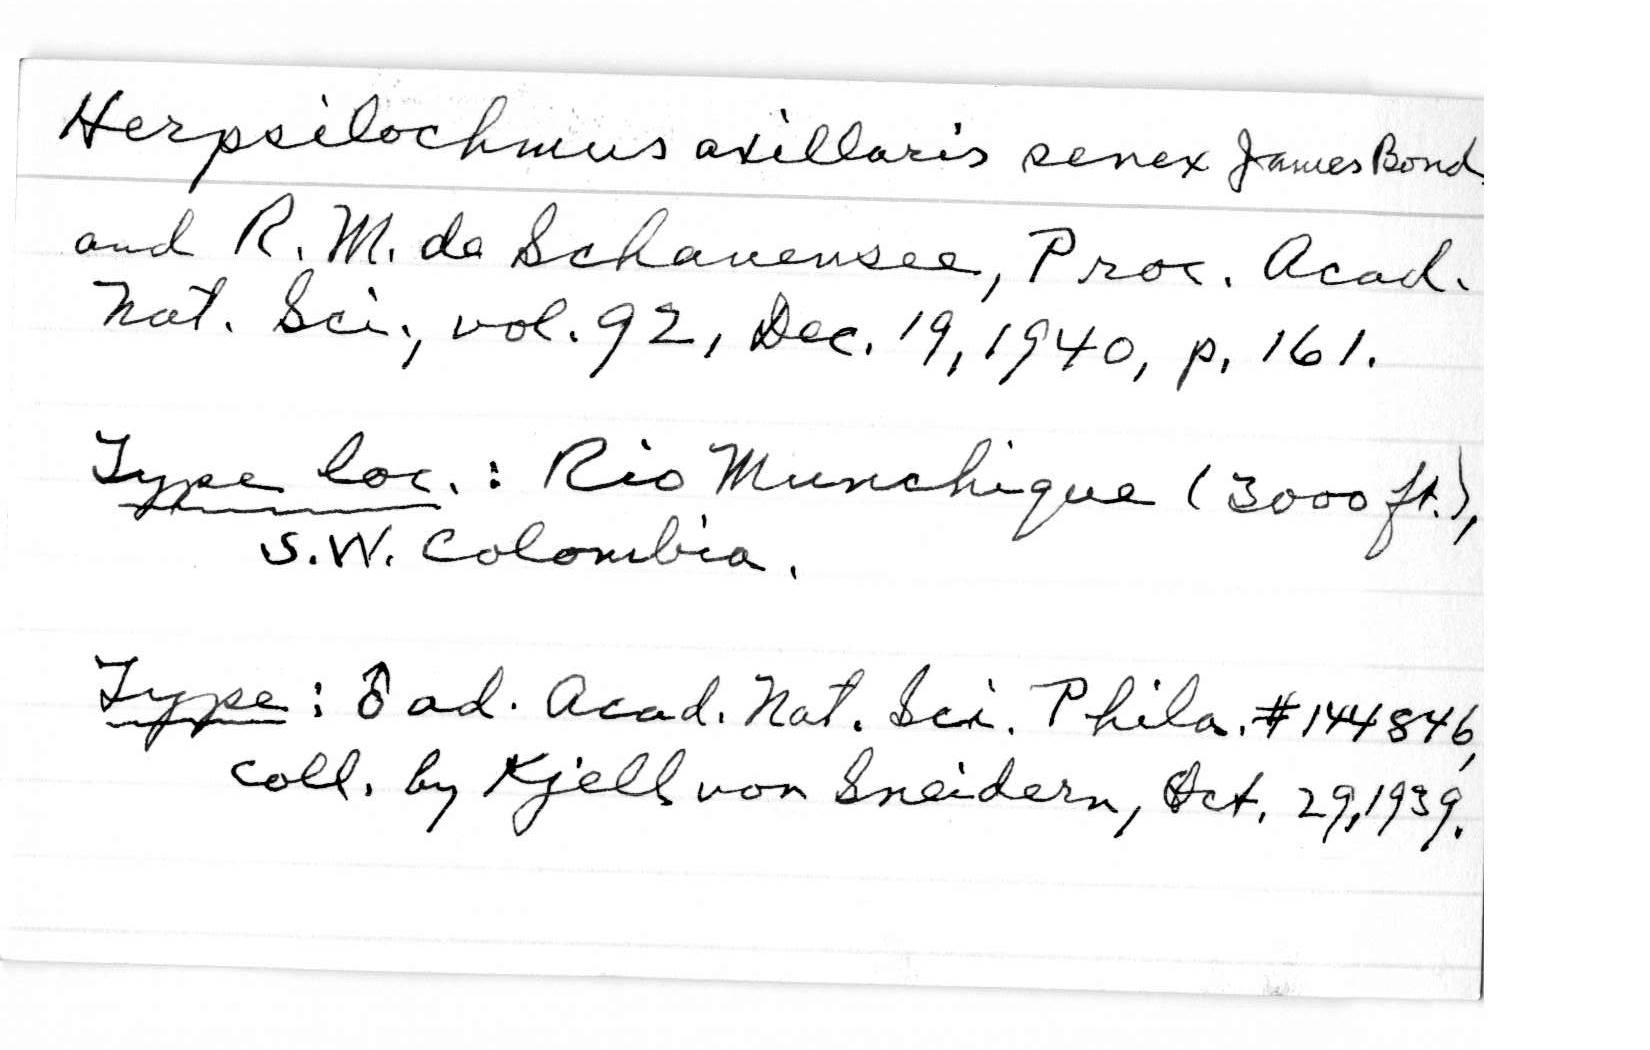 Herpsilochmus axillaris senex James Bond
and R. M. de Schauensee, Proc. Acad.
Nat. Sci., vol. 92, Dec. 19, 1940, p. 161.
Type loc.: Rio Munchique (3000 ft.),
S.W. Colombia.
Type: ♂ ad. Acad. Nat. Sci. Phila. #144846,
coll. by Kjell von Sneidern, Oct. 29, 1939.